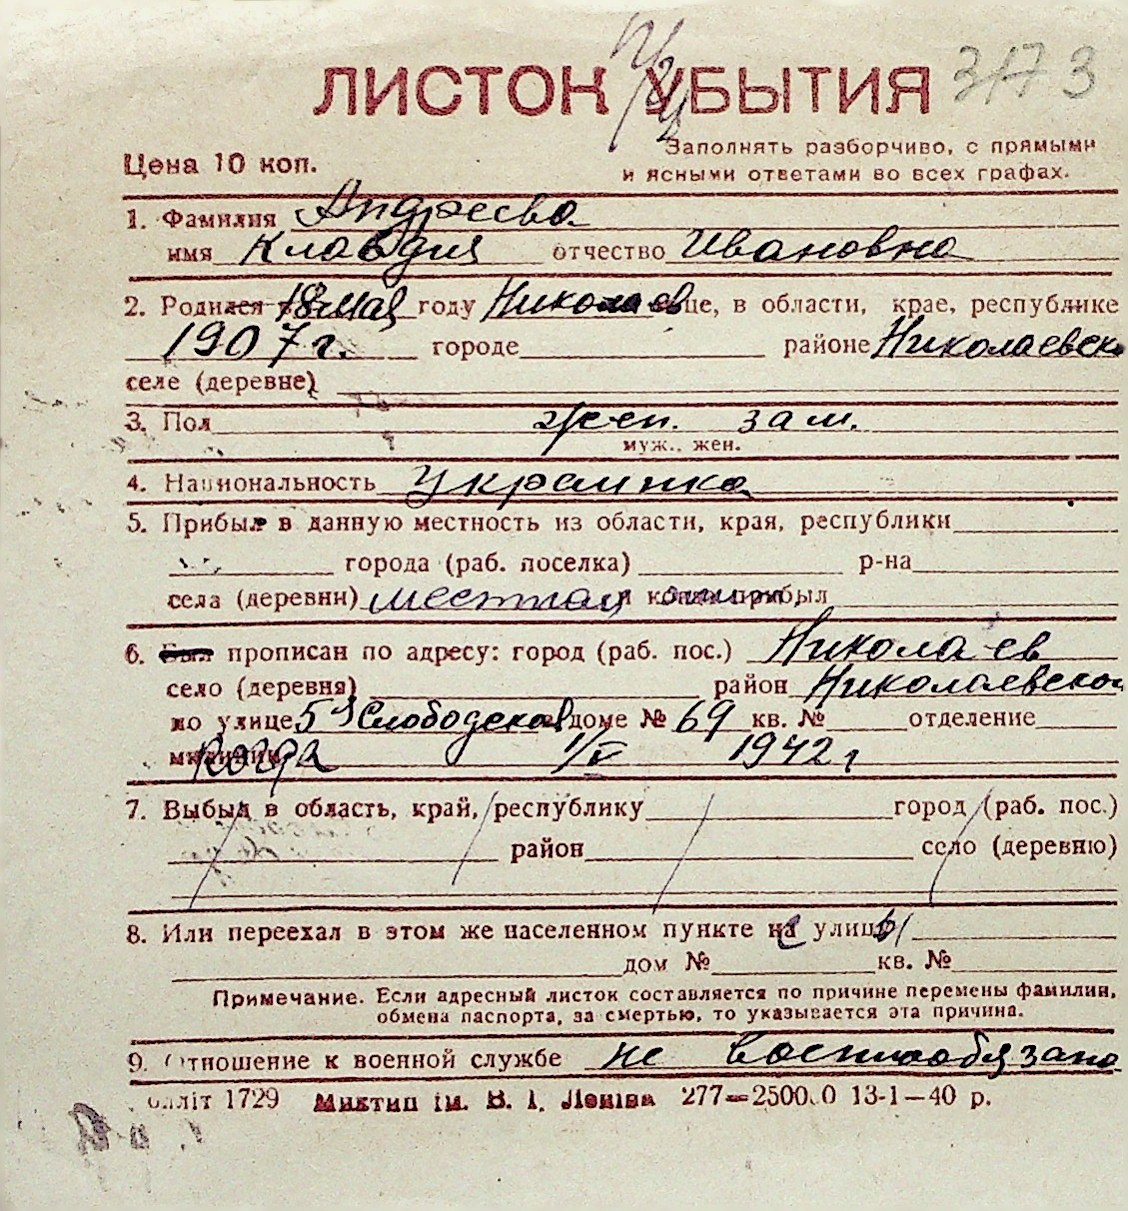 ЛИСТОК УБЫТИЯ 3173
Цена 10 коп.
Заполнять разборчиво, с прямыми
и ясными ответами во всех графах.
1. Фамилия Андреева
имя Клавдия отчество Ивановна
2. Родился в 18 мая году Николаев це, в области, крае, республике
1907 г. городе районе Николаевск
селе (деревне)
3. Пол жен. зам.
муж., жен.
4. Национальность Украинка
5. Прибыл в данную местность из области, края, республики
города (раб. поселка) р-на
села (деревни) местная и когда прибыл
6. Был прописан по адресу: город (раб. пос.) Николаев
село (деревня) район Николаевской
по улице 5я Слободская доме № 69 кв. № отделение
милиции когда 1/V 1942 г
7. Выбыл в область, край, республику город (раб. пос.)
район село (деревню)
8. Или переехал в этом же населенном пункте на улицы
дом № кв. №
Примечание. Если адресный листок составляется по причине перемены фамилии,
обмена паспорта, за смертью, то указывается эта причина.
9. Отношение к военной службе не военнообязана
блліт 1729 Миктип ім. В. І. Леніна 277—25000 13-1—40 р.